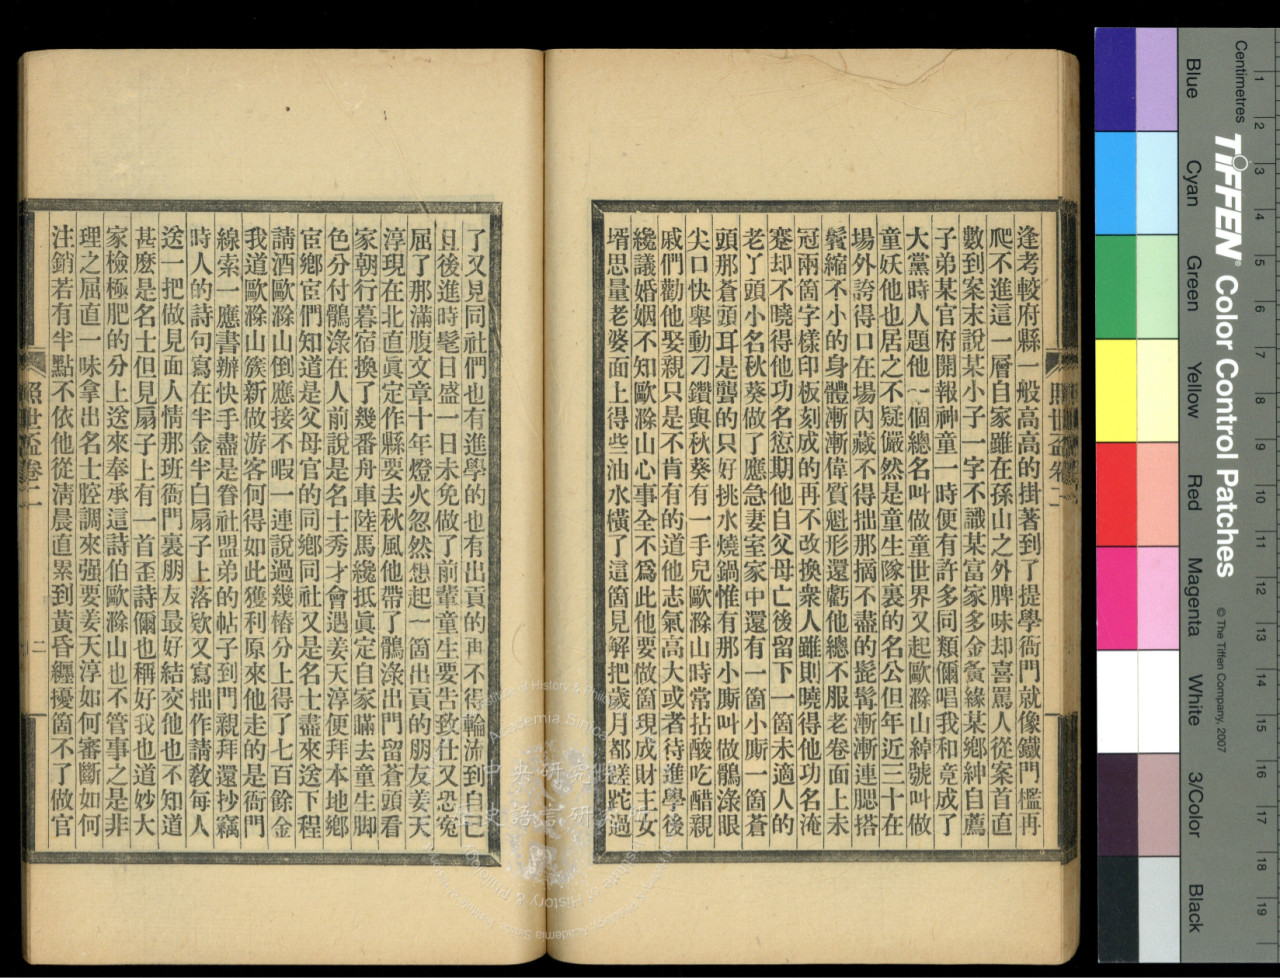 逢考較府縣一般高高的掛著到了提學衙門就像鐵門檻再
爬不進這一層自家雖在孫山之外脾味却喜罵人從案首直
數到案末說某小子一字不識某富家多金夤緣某鄉紳自薦
子弟某官府開報神童一時便有許多同類儞唱我和竟成了
大黨時人題他一個總名叫做童世界又起歐滁山綽號叫做
童妖他也居之不疑儼然是童生隊裏的名公但年近三十在
場外誇得口在場內藏不得拙那摘不盡的髭髯漸漸連腮搭
鬢縮不小的身體漸漸偉質魁形還虧他總不服老卷面上未
冠兩箇字樣印板刻成的再不改換衆人雖則曉得他功名淹
蹇却不曉得他功名愆期他自父母亡後留下一箇未適人的
老丫頭小名秋葵做了應急妻室家中還有一箇小厮一箇蒼
頭那蒼頭耳是聾的只好挑水燒鍋惟有那小厮叫做鶻淥眼
尖口快舉動刁鑽與秋葵有一手兒歐滁山時常拈酸吃醋親
戚們勸他娶親只是不肯有的道他志氣高大或者待進學後
纔議婚姻不知歐滁山心事全不爲此他要做箇現成財主女
壻思量老婆面上得些油水橫了這箇見解把歲月都蹉跎過
照世盃卷二
了又見同社們也有進學的也有出貢的再不得輪流到自己
且後進時髦日盛一日未免做了前輩童生要告致仕又恐寃
屈了那滿腹文章十年燈火忽然想起一箇出貢的朋友姜天
淳現在北直眞定作縣要去秋風他帶了鶻淥出門留蒼頭看
家朝行暮宿換了幾番舟車陸馬纔抵眞定自家瞞去童生脚
色分付鶻淥在人前說是名士秀才會遇姜天淳便拜本地鄉
宦鄉宦們知道是父母官的同鄉同社又是名士盡來送下程
請酒歐滁山倒應接不暇一連說過幾樁分上得了七百餘金
我道歐滁山簇新做游客何得如此獲利原來他走的是衙門
線索一應書辦快手盡是眷社盟弟的帖子到門親拜還抄竊
時人的詩句寫在半金半白扇子上落欵又寫拙作請敎每人
送一把做見面人情那班衙門裏朋友最好結交他也不知道
甚麽是名士但見扇子上有一首歪詩儞也稱好我也道妙大
家檢極肥的分上送來奉承這詩伯歐滁山也不管事之是非
理之屈直一味拿出名士腔調來强要姜天淳如何審斷如何
注銷若有半點不依他從淸晨直累到黃昏纏擾箇不了做官
照世盃卷二
二
中央研究院
歷史語言研究所
TIFFEN® Color Control Patches
© The Tiffen Company, 2007
Centimetres
1 2 3 4 5 6 7 8 9 10 11 12 13 14 15 16 17 18 19
Blue
Cyan
Green
Yellow
Red
Magenta
White
3/Color
Black